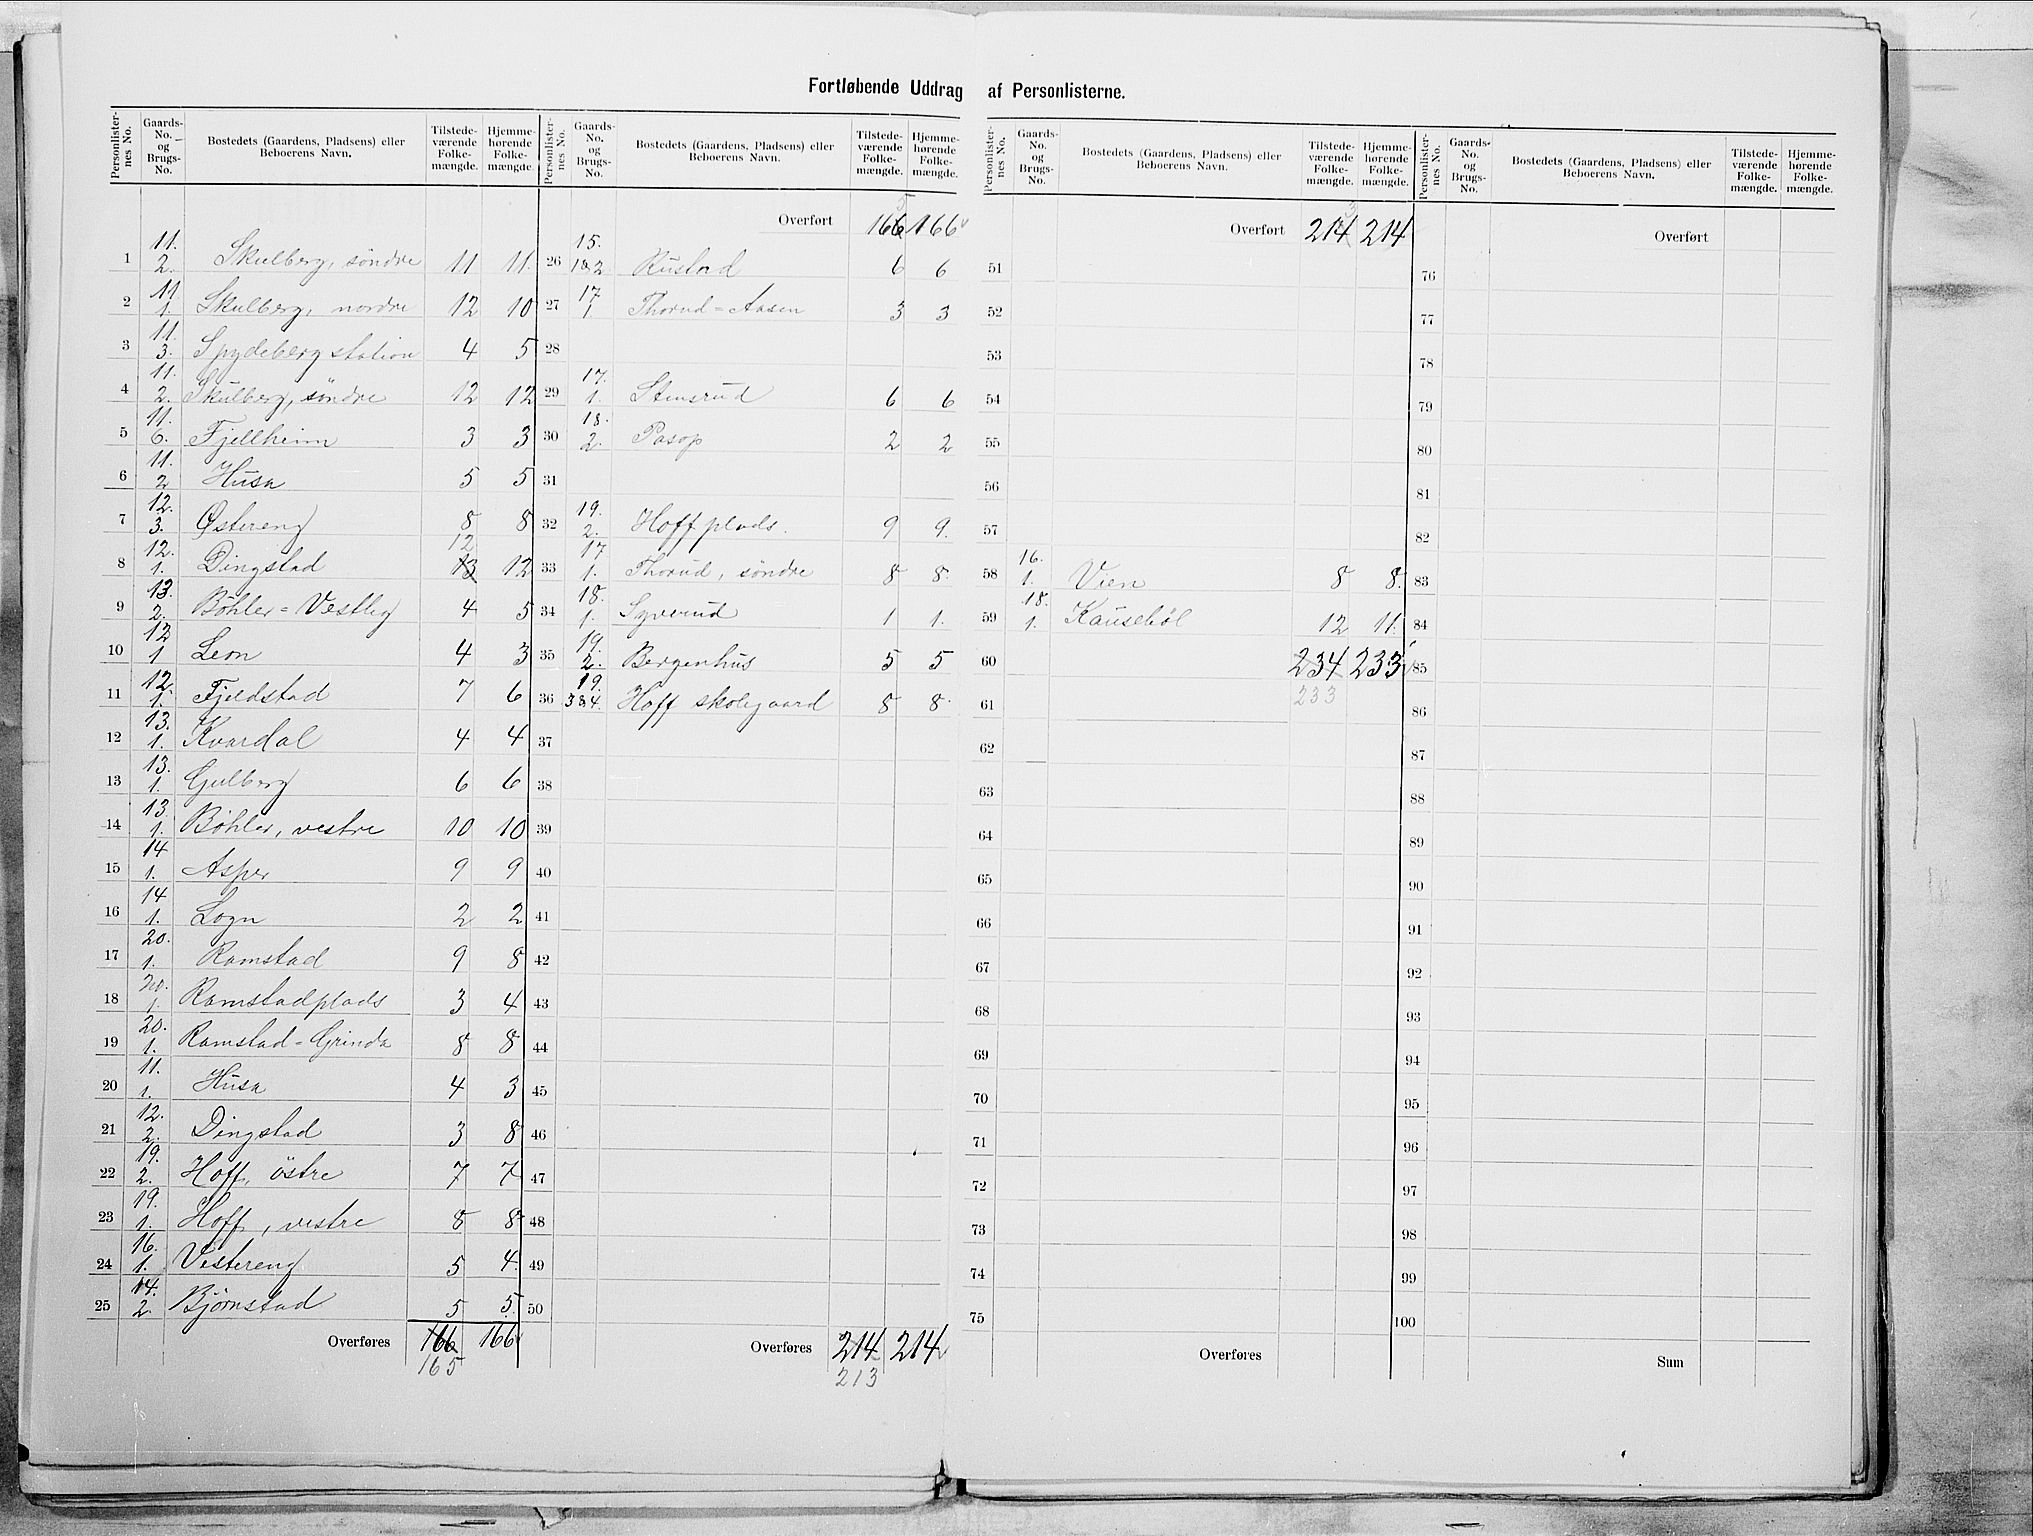 Fortløbende Uddrag af Personlisterne.
Personlister-nes No. | Gaards-No. og Brugs-No. | Bostedets (Gaardens, Pladsens) eller Beboerens Navn. | Tilstede-værende Folke-mængde. | Hjemme-hørende Folke-mængde.
1 | 11. 2. | Skulberg, søndre | 11 | 11.
2 | 11 1. | Skulberg, nordre | 12 | 10
3 | 11. 3. | Spydeberg station | 4 | 5
4 | 11. 2. | Skulberg, søndre | 12 | 12
5 | 11. 6. | Fjellheim | 3 | 3
6 | 11. 2 | Husa | 5 | 5
7 | 12. 3. | Østereng | 8 | 8
8 | 12. 1. | Dingstad | 12 13 | 12
9 | 13. 2. | Böhler=Vestby | 4 | 5
10 | 12 1 | Leon | 4 | 3
11 | 12. 1. | Fjeldstad | 7 | 6
12 | 13. 1. | Kvardal | 4 | 4
13 | 13. 1. | Gulberg | 6 | 6
14 | 13. 1. | Bøhler, vestre | 10 | 10
15 | 14 1. | Asper | 9 | 9
16 | 14 1. | Logn | 2 | 2
17 | 20. 1. | Ramstad | 9 | 8
18 | 20. 1. | Ramstadplads | 3 | 4
19 | 20. 1. | Ramstad=Grinda | 8 | 8
20 | 11. 1. | Husa | 4 | 3
21 | 12. 2. | Dingstad | 3 | 8
22 | 19. 2. | Hoff, östre | 7 | 7
23 | 19. 1. | Hoff, vestre | 8 | 8
24 | 16. 1. | Vestereng | 5 | 4.
25 | 14. 2. | Bjørnstad | 5 | 5.
Overføres | 166 | 166
165
Personlister-nes No. | Gaards-No. og Brugs-No. | Bostedets (Gaardens, Pladsens) eller Beboerens Navn. | Tilstede-værende Folke-mængde. | Hjemme-hørende Folke-mængde.
5
Overført | 166 | 166
26 | 15. 1&2 | Rustad | 6 | 6
27 | 17 1. | Thorud=Aasen | 3 | 3
28
29 | 17. 1. | Stensrud | 6 | 6
30 | 18. 2. | Pasop | 2 | 2
31
32 | 19. 2. | Hoffplads. | 9 | 9.
33 | 17 1. | Thorud, søndre | 8 | 8.
34 | 18. 1. | Syverud | 1 | 1.
35 | 19. 2. | Bergenhus | 5 | 5
36 | 19. 3&4. | Hoff skolegaard | 8 | 8.
37
38
39
40
41
42
43
44
45
46
47
48
49
50
Overføres | 214 | 214
213
Personlister-nes No. | Gaards-No. og Brugs-No. | Bostedets (Gaardens, Pladsens) eller Beboerens Navn. | Tilstede-værende Folke-mængde. | Hjemme-hørende Folke-mængde.
3
Overført | 214 | 214
51
52
53
54
55
56
57
58 | 16. 1. | Vien | 8 | 8.
59 | 18. 1. | Kausebøl | 12 | 11.
60 | 234 | 233
61 | 233
62
63
64
65
66
67
68
69
70
71
72
73
74
75
Overføres
Personlister-nes No. | Gaards-No. og Brugs-No. | Bostedets (Gaardens, Pladsens) eller Beboerens Navn. | Tilstede-værende Folke-mængde. | Hjemme-hørende Folke-mængde.
Overført
76
77
78
79
80
81
82
83
84
85
86
87
88
89
90
91
92
93
94
95
96
97
98
99
100
Sum